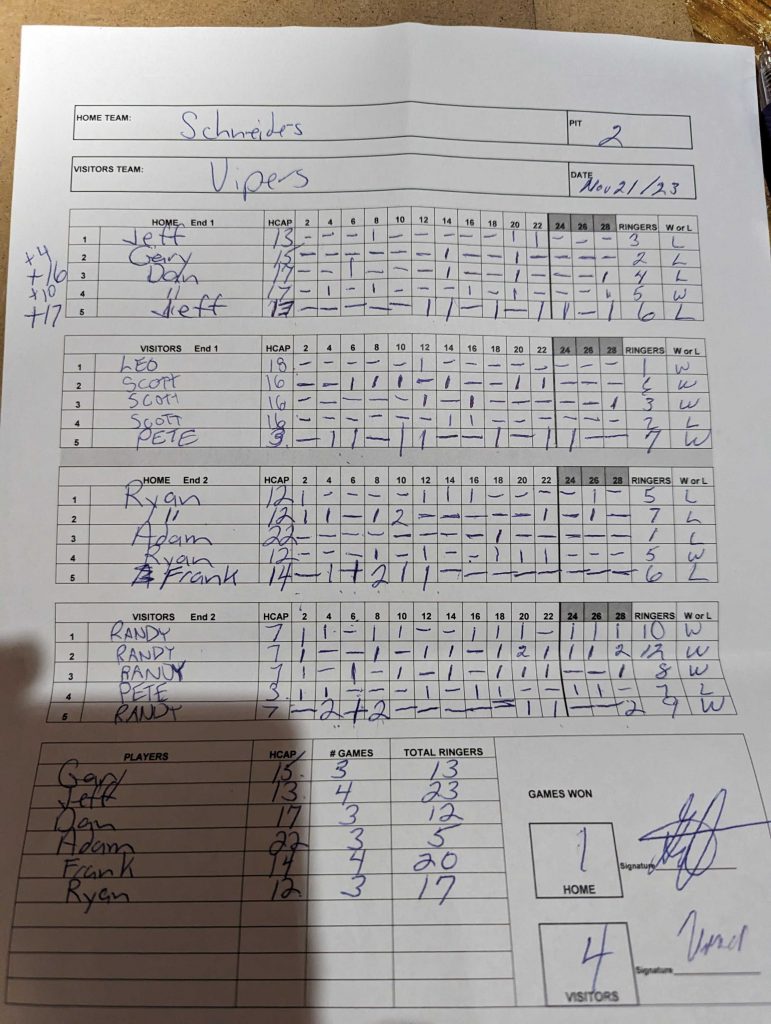 HOME TEAM: Schneiders PIT 2
VISITORS TEAM: Vipers DATE Nov 21/23
HOME End 1 HCAP 2 4 6 8 10 12 14 16 18 20 22 24 26 28 RINGERS W or L
1 Jeff 13 - - - 1 - - - - - 1 1 - - - 3 L
+4 2 Gary 15 - - - - - - 1 - - 1 - - - - 2 L
+16 3 Dan 17 - - 1 - - - 1 - - 1 - - - 1 4 L
+10 4 " 17 - 1 - 1 - - - 1 - 1 - - - 1 5 W
+17 5 Jeff 13 - - - - - 1 1 - 1 - 1 1 - 1 6 L
VISITORS End 1 HCAP 2 4 6 8 10 12 14 16 18 20 22 24 26 28 RINGERS W or L
1 LEO 18 - - - - - 1 - - - - - - - - 1 W
2 SCOTT 16 - - 1 1 1 - 1 - - 1 1 - - - W
3 SCOTT 16 - - - - - 1 - 1 - - - - - 1 3 W
4 SCOTT 16 - - - - - - 1 1 - - - - - - 2 L
5 PETE 3 - 1 1 - 1 1 - - 1 - 1 1 - - 7 W
HOME End 2 HCAP 2 4 6 8 10 12 14 16 18 20 22 24 26 28 RINGERS W or L
1 Ryan 12 1 - - - - 1 1 1 - - - - 1 - 5 L
2 " 12 1 1 - 1 2 - - - - - 1 - 1 - 7 L
3 Adam 22 - - - - - - - - 1 - - - - - 1 L
4 Ryan 12 - - - 1 - 1 - - 1 1 1 - - - 5 W
5 Frank 14 - 1 1 2 1 1 - - - - - - - - 6 L
VISITORS End 2 HCAP 2 4 6 8 10 12 14 16 18 20 22 24 26 28 RINGERS W or L
1 RANDY 7 1 1 - 1 1 - - 1 1 1 - 1 1 1 10 W
2 RANDY 7 1 - - 1 - 1 1 - 1 2 1 1 1 2 12 W
3 RANDY 7 1 - 1 - 1 - 1 - 1 1 1 - - 1 8 W
4 PETE 3 1 1 - - - 1 - 1 1 - - 1 1 - 7 L
5 RANDY 7 - 2 1 2 - - - - - 1 1 - - 2 9 W
PLAYERS HCAP # GAMES TOTAL RINGERS
Gary 15 3 13
Jeff 13 4 23
Dan 17 3 12
Adam 22 3 5
Frank 14 4 20
Ryan 12 3 17
GAMES WON
1 Signature
HOME
4 Signature
VISITORS